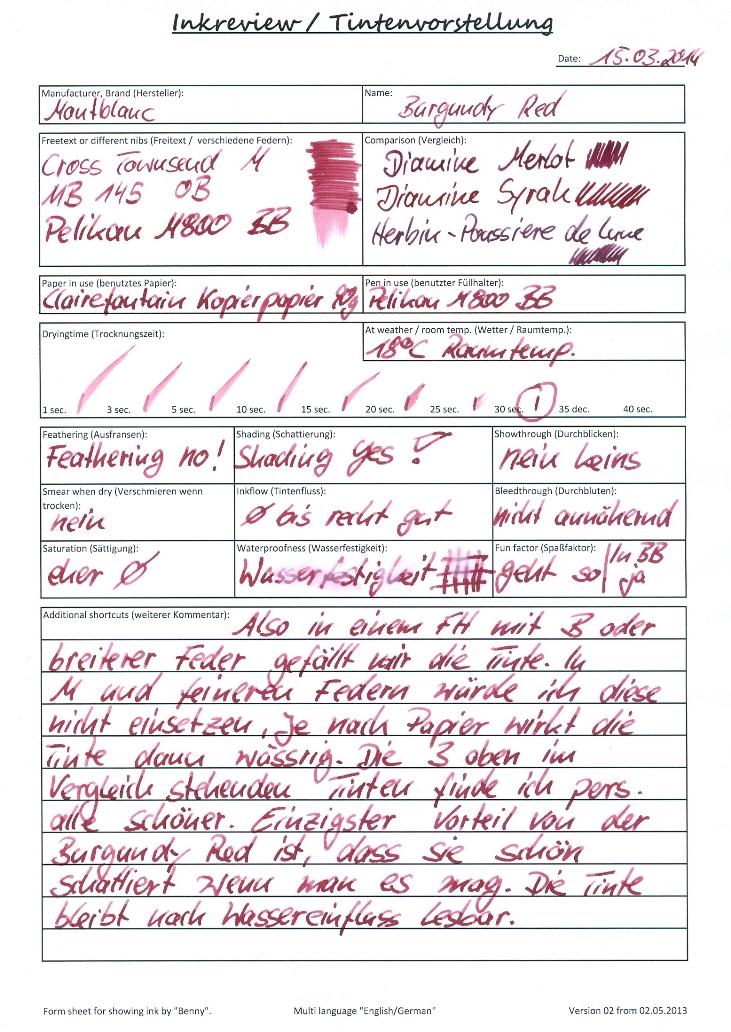 Inkreview / Tintenvorstellung
Date: 15.03.2014
Manufacturer, Brand (Hersteller):
Montblanc
Name:
Burgundy Red
Freetext or different nibs (Freitext / verschiedene Federn):
Cross Townsend M
MB 145 OB
Pelikan M800 BB
Comparison (Vergleich):
Diamine Merlot
Diamine Syrah
Herbin - Poussiere de Lune
Paper in use (benutztes Papier):
Clairefontain Kopierpapier 90g
Pen in use (benutzter Füllhalter):
Pelikan M800 BB
Dryingtime (Trocknungszeit):
At weather / room temp. (Wetter / Raumtemp.):
18°C Raumtemp.
1 sec. 3 sec. 5 sec. 10 sec. 15 sec. 20 sec. 25 sec. 30 sec. 35 dec. 40 sec.
Feathering (Ausfransen):
Feathering no!
Shading (Schattierung):
Shading yes!
Showthrough (Durchblicken):
nein keins
Smear when dry (Verschmieren wenn
trocken):
nein
Inkflow (Tintenfluss):
Ø bis recht gut
Bleedthrough (Durchbluten):
nicht annähernd
Saturation (Sättigung):
eher Ø
Waterproofness (Wasserfestigkeit):
Wasserfestigkeit
Fun factor (Spaßfaktor):
geht so / In BB
ja
Additional shortcuts (weiterer Kommentar):
Also in einem FH mit B oder
breiterer Feder gefällt mir die Tinte. In
M und feineren Federn würde ich diese
nicht einsetzen, je nach Papier wirkt die
Tinte dann wässrig. Die 3 oben im
Vergleich stehenden Tinten finde ich pers.
alle schöner. Einzigster Vorteil von der
Burgundy Red ist, dass sie schön
schattiert wenn man es mag. Die Tinte
bleibt nach Wassereinfluss lesbar.
Form sheet for showing ink by "Benny". Multi language "English/German" Version 02 from 02.05.2013